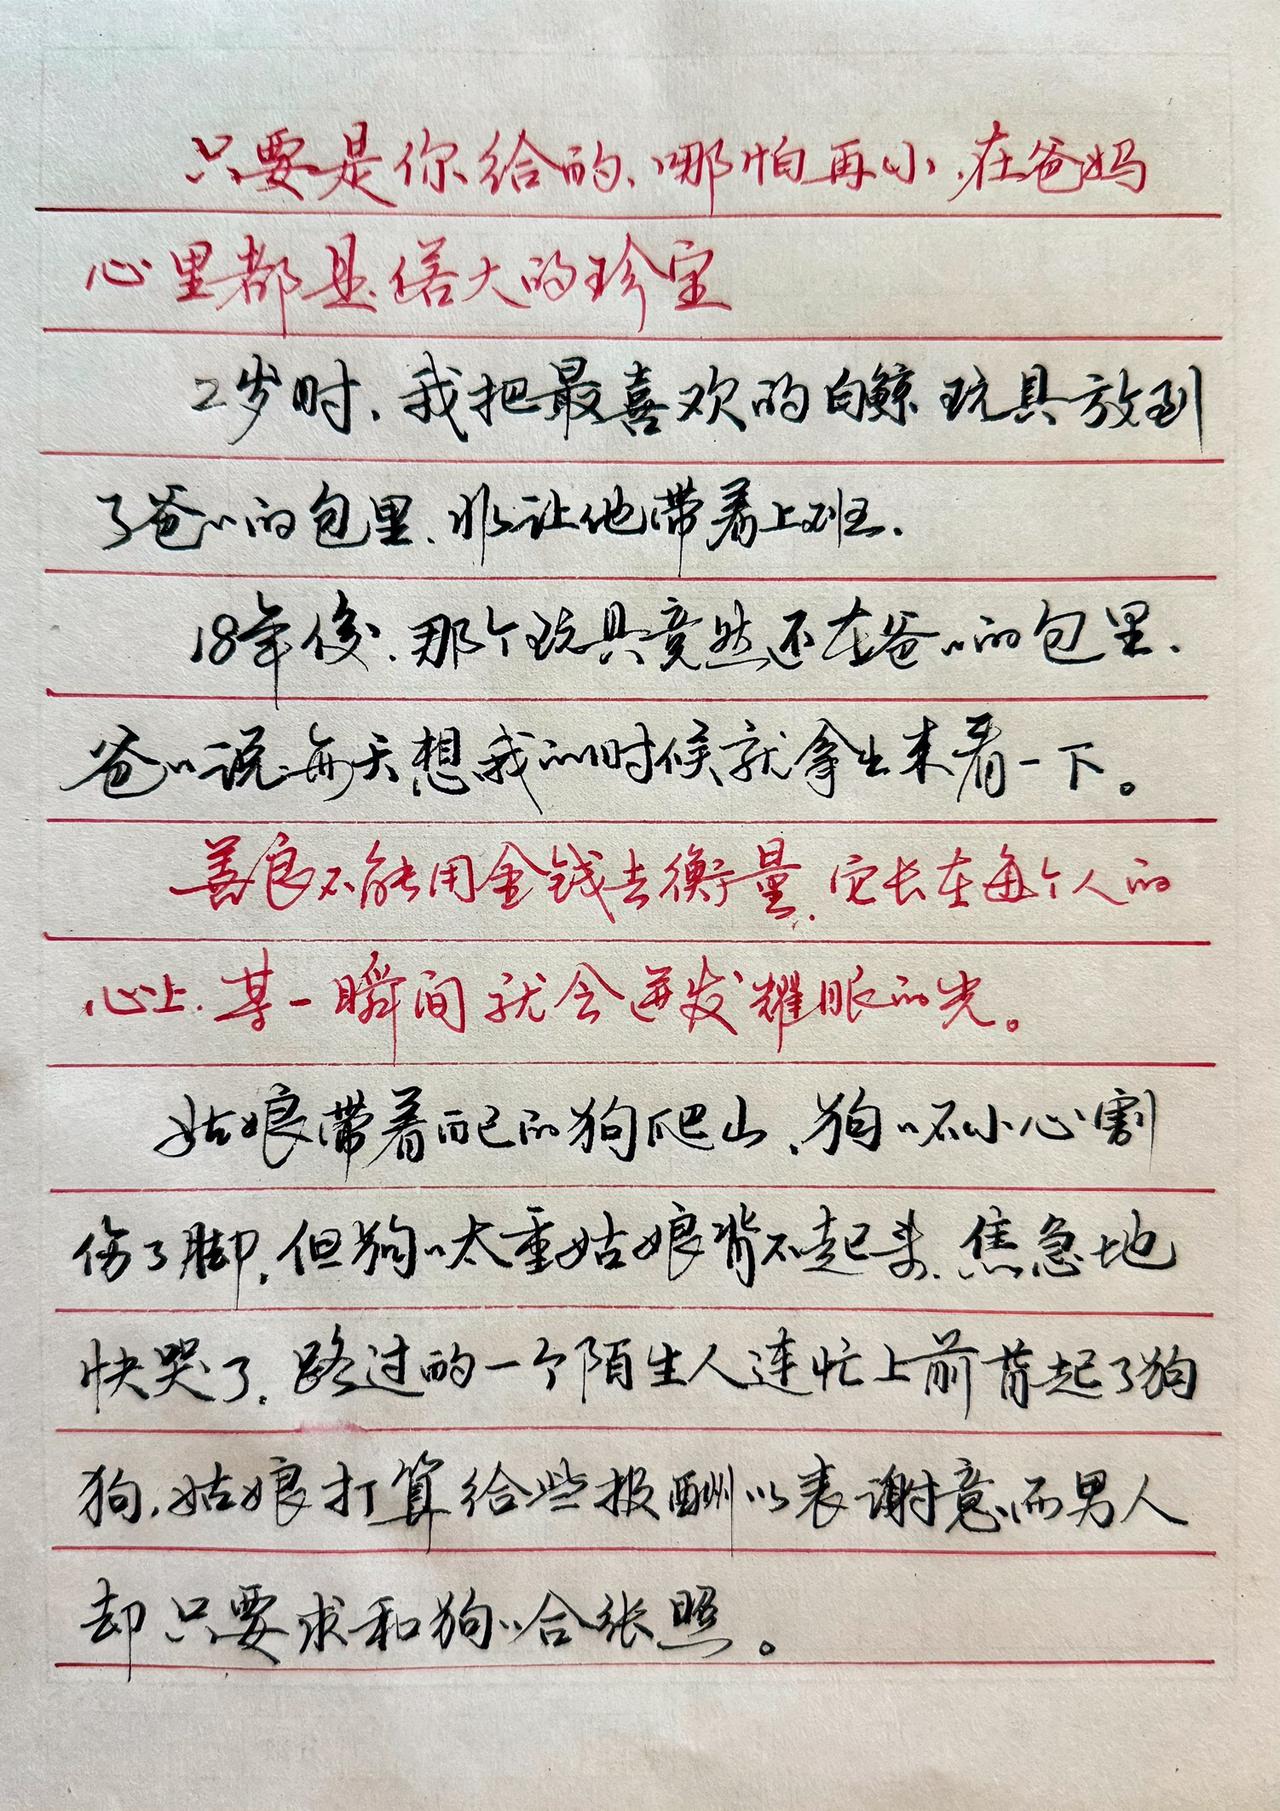 只要是你给的、哪怕再小、在爸妈
心里都是偌大的珍宝
2岁时、我把最喜欢的白鲸玩具放到
了爸爸的包里、非让他带着上班.
18年後、那个玩具竟然还在爸爸的包里.
爸爸说每天想我的时候就拿出来看一下。
善良不能用金钱去衡量、它长在每个人的
心上、某一瞬间就会迸发耀眼的光。
姑娘带着自己的狗爬山、狗狗不小心割
伤了脚、但狗狗太重姑娘背不起来、焦急地
快哭了、路过的一个陌生人连忙上前背起了狗
狗、姑娘打算给些报酬以表谢意、而男人
却只要求和狗狗合张照。